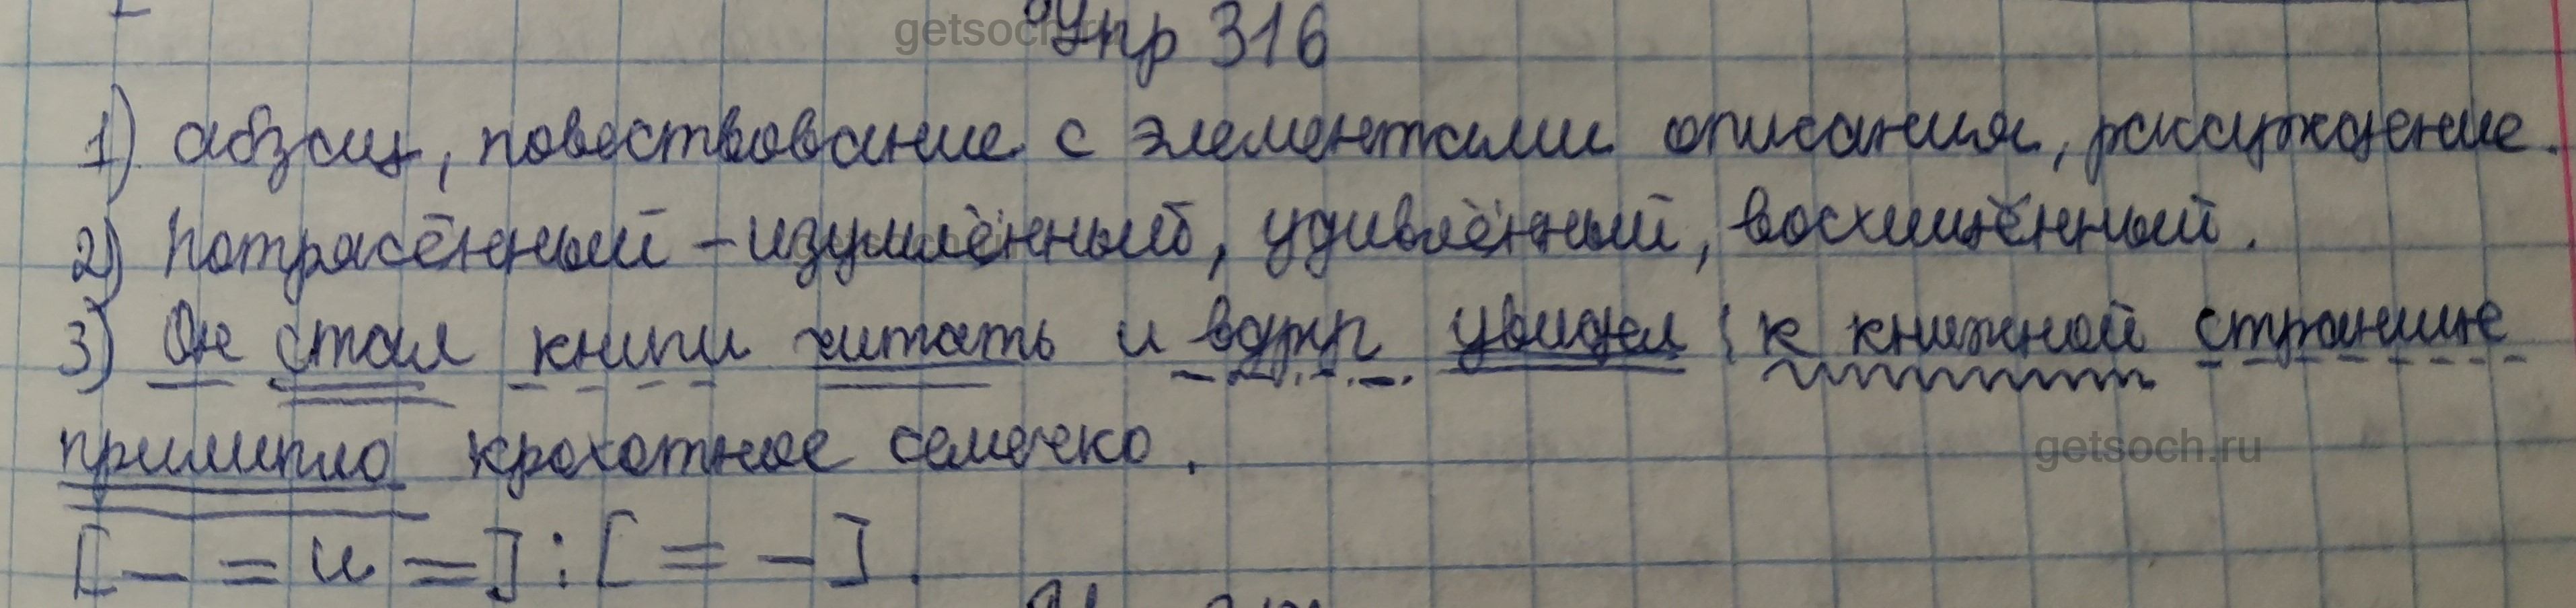 Упр 316
1) абзац, повествование с элементами описания, рассуждение.
2) Потрясённый – изумлённый, удивлённый, восхищённый.
3) Он стал книги читать и вдруг увидел: к книжной странице
прилипло крохотное семечко.
[– = и =] : [= –].
getsoch.ru